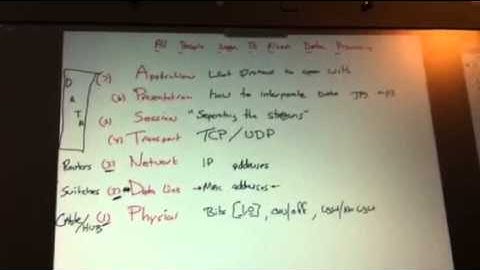 All People Seem To Need Data Processing
DATA
(7) Application What to open with
(6) Presentation How to interpurate Data JPG MP3
(5) Session "Separating the streams"
(4) Transport TCP/UDP
Routers (3) Network IP addresses
Switches (2) Data Link Mac addresses
Cable/HUB (1) Physical Bits [1,0], on/off, Light/No Light